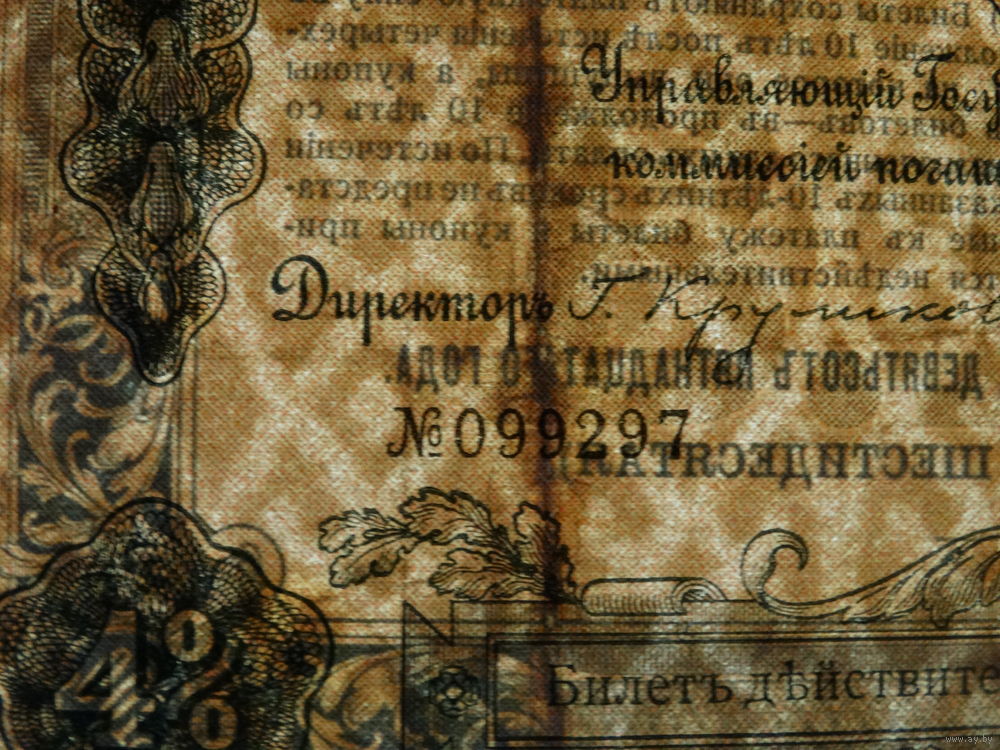 Билеты сохраняютъ платежную силу въ
10 лѣтъ послѣ истеченія четырех-
а купоны
билетовъ—въ продолженіе 10 лѣтъ со
По истеченіи
указанныхъ 10-лѣтнихъ сроковъ не предста-
къ платежу билеты и купоны при-
недѣйствительными.
Управляющій Госу
коммисіей погаш
Директоръ Г. Круликов
ДЕВЯТЬСОТЪ ПЯТНАДЦАТАГО ГОДА.
№ 099297
ШЕСТИДЕСЯТАЯ)
4%
Билетъ дѣйствите
www.ay.by